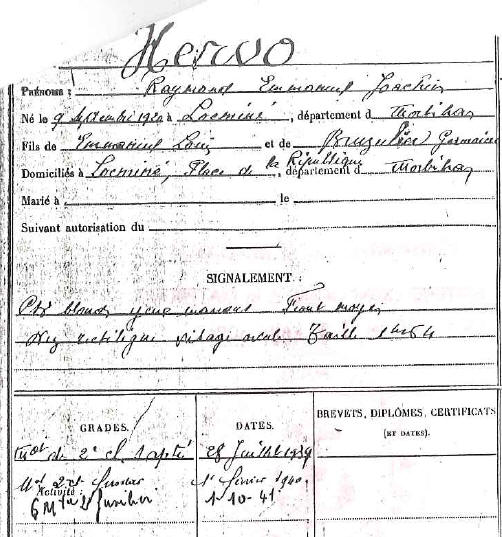 Hervo
PRÉNOMS : Raymond Emmanuel Joachim
Né le 9 septembre 1920 à Locminé, département d Morbihan
Fils de Emmanuel Louis et de Germaine
Domiciliés à Locminé, Place de la République, département d Morbihan
Marié à le
Suivant autorisation du
SIGNALEMENT :
blonds yeux marrons Front moyen
Nez rectiligne visage ovale Taille 1m64
GRADES. DATES. BREVETS, DIPLÔMES, CERTIFICATS
(ET DATES).
Mot de 2e cl 28 Juillet 1939
Mot 2e cl fusilier 1er février 1940
Activité :
fusilier 1-10-41